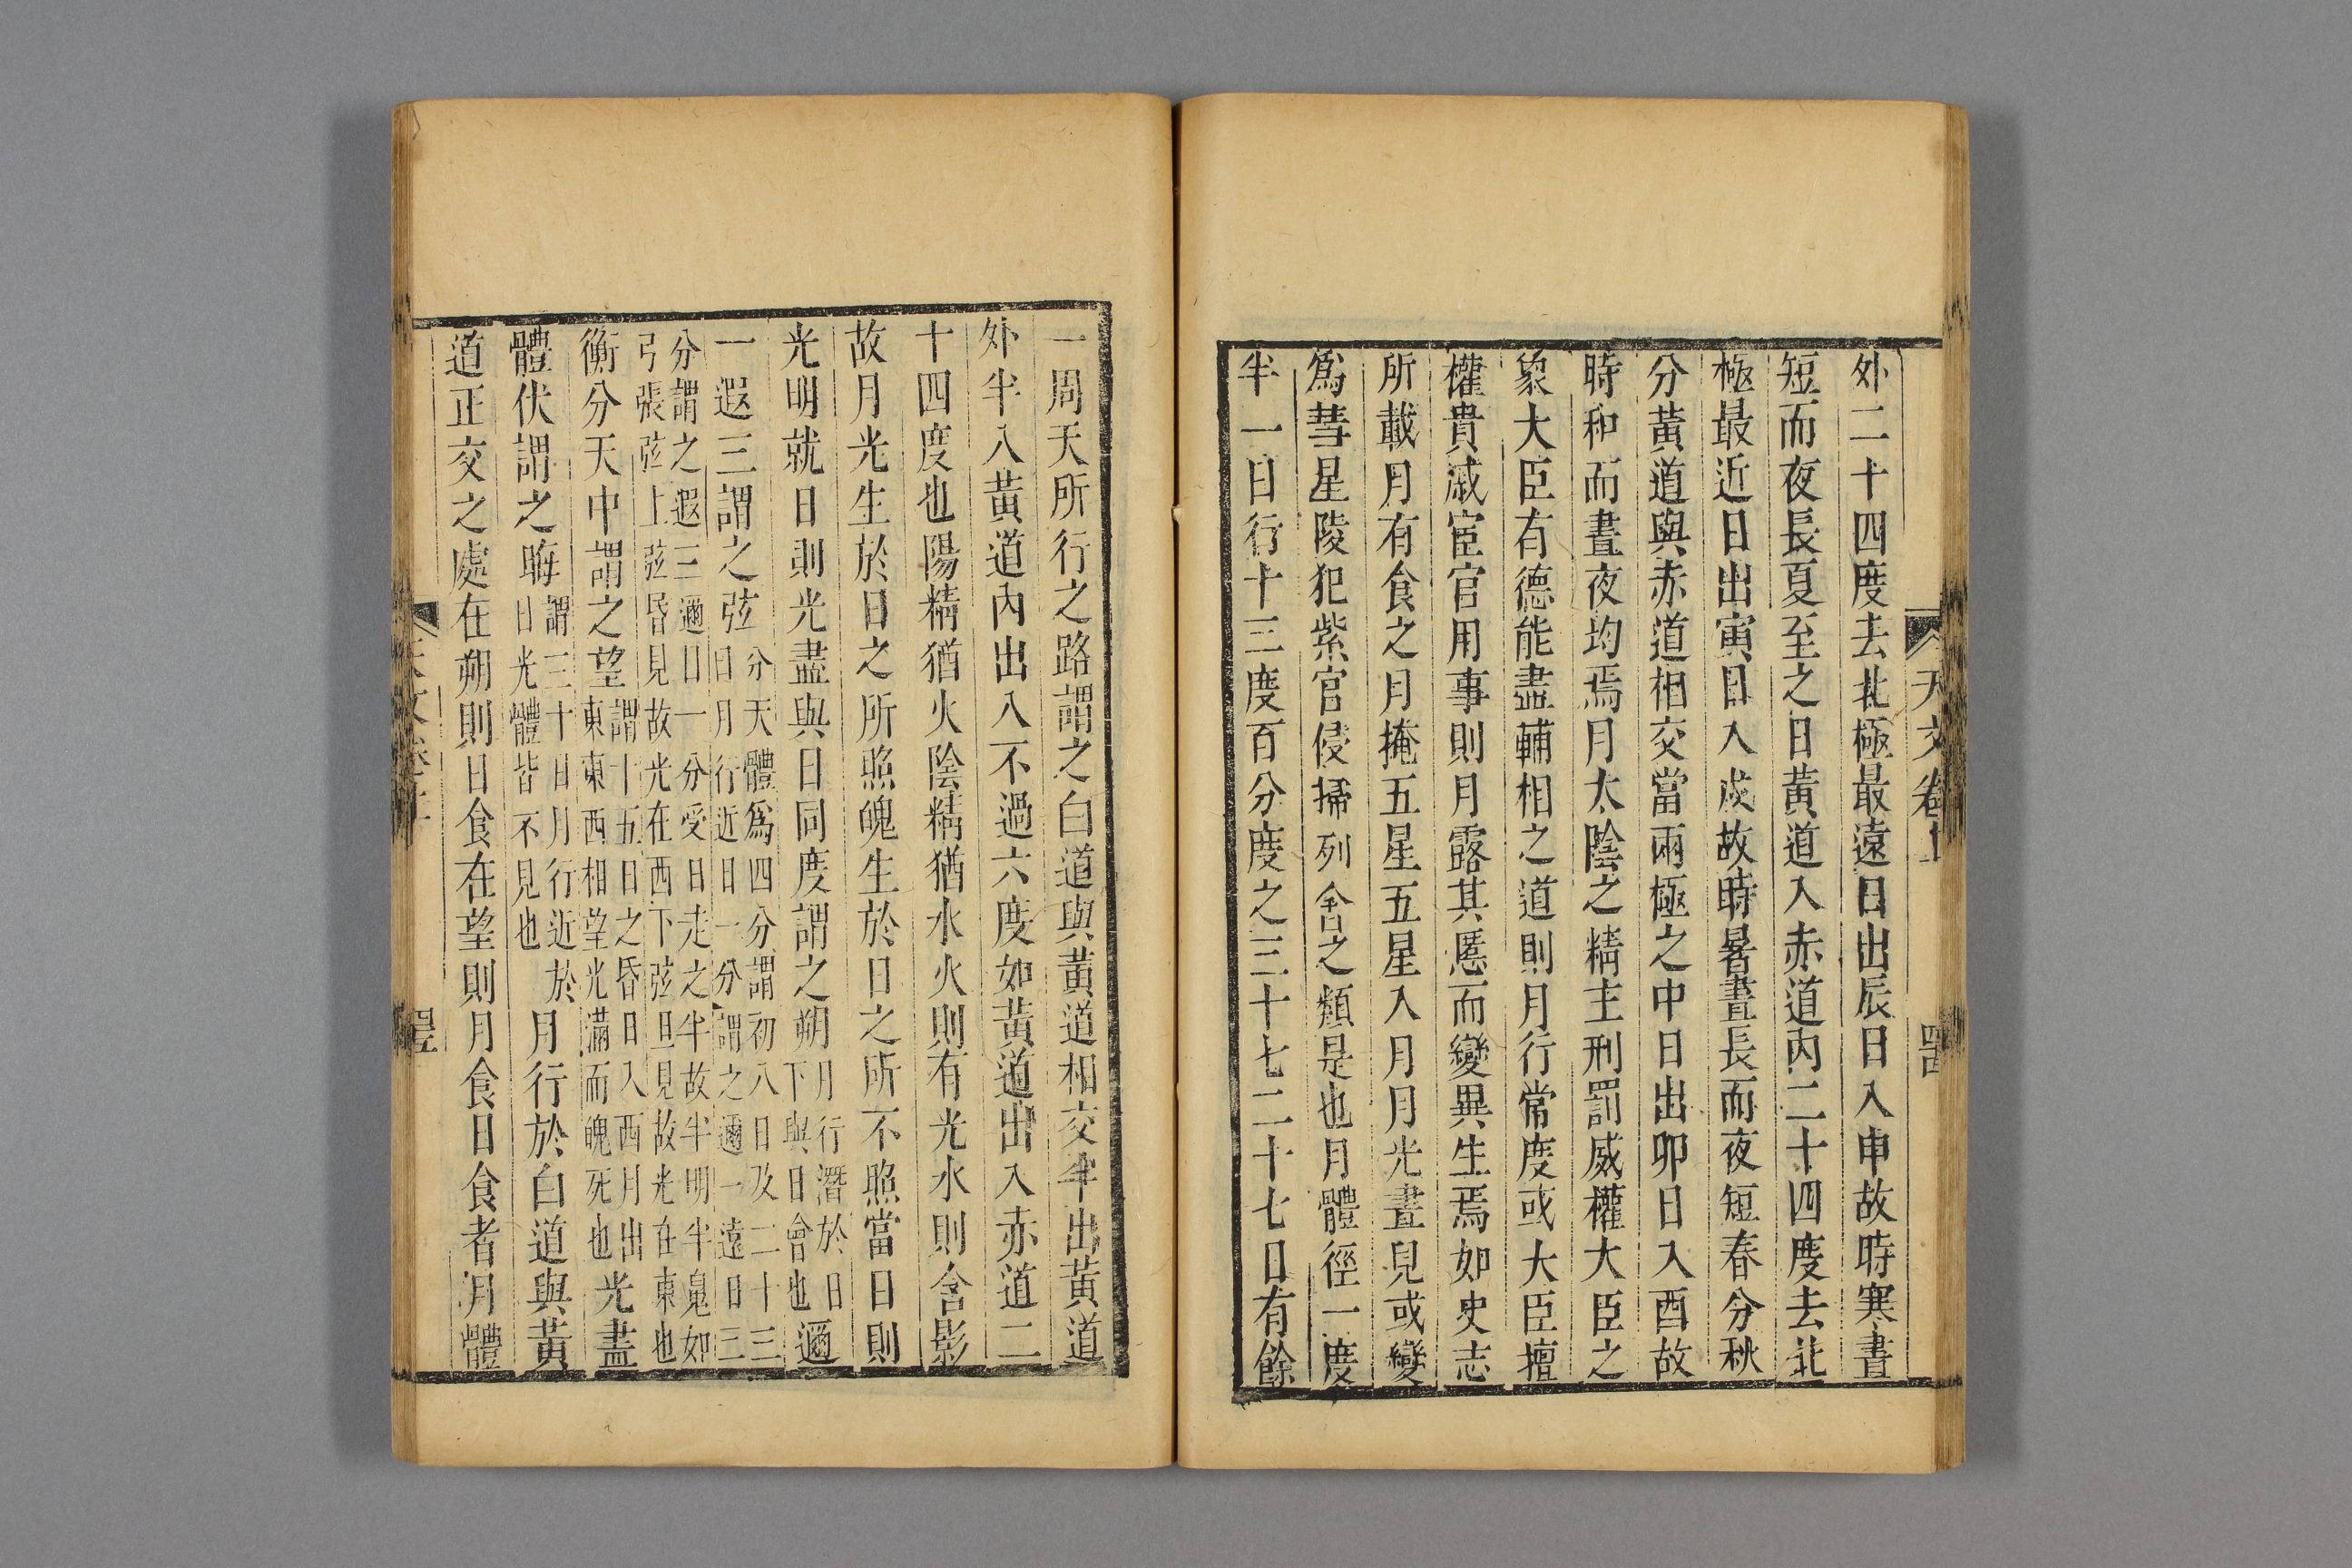 天文卷上
外二十四度去北極最遠日出辰日入申故時寒晝
短而夜長夏至之日黃道入赤道內二十四度去北
極最近日出寅日入戌故時暑晝長而夜短春分秋
分黃道與赤道相交當兩極之中日出卯日入酉故
時和而晝夜均焉月太陰之精主刑罰威權大臣之
象大臣有德能盡輔相之道則月行常度或大臣擅
權貴戚宦官用事則月露其慝而變異生焉如史志
所載月有食之月掩五星五星入月月光晝見或變
爲彗星陵犯紫宮侵掃列舍之類是也月體徑一度
半一日行十三度百分度之三十七二十七日有餘
一周天所行之路謂之白道與黃道相交半出黃道
外半入黃道內出入不過六度如黃道出入赤道二
十四度也陽精猶火陰精猶水火則有光水則含影
故月光生於日之所照魄生於日之所不照當日則
光明就日則光盡與日同度謂之朔月行潛於日下與日會也邇
一遐三謂之弦分天體爲四分謂初八日及二十三日月行近日一分謂之邇一遠日三
分謂之遐三邇日一分受日光之半故半明半魄如弓張弦上弦昏見故光在西下弦旦見故光在東也
衡分天中謂之望謂十五日之昏日入西月出東東西相望光滿而魄死也光盡
體伏謂之晦謂三十日月行近於日光體皆不見也月行於白道與黃
道正交之處在朔則日食在望則月食日食者月體